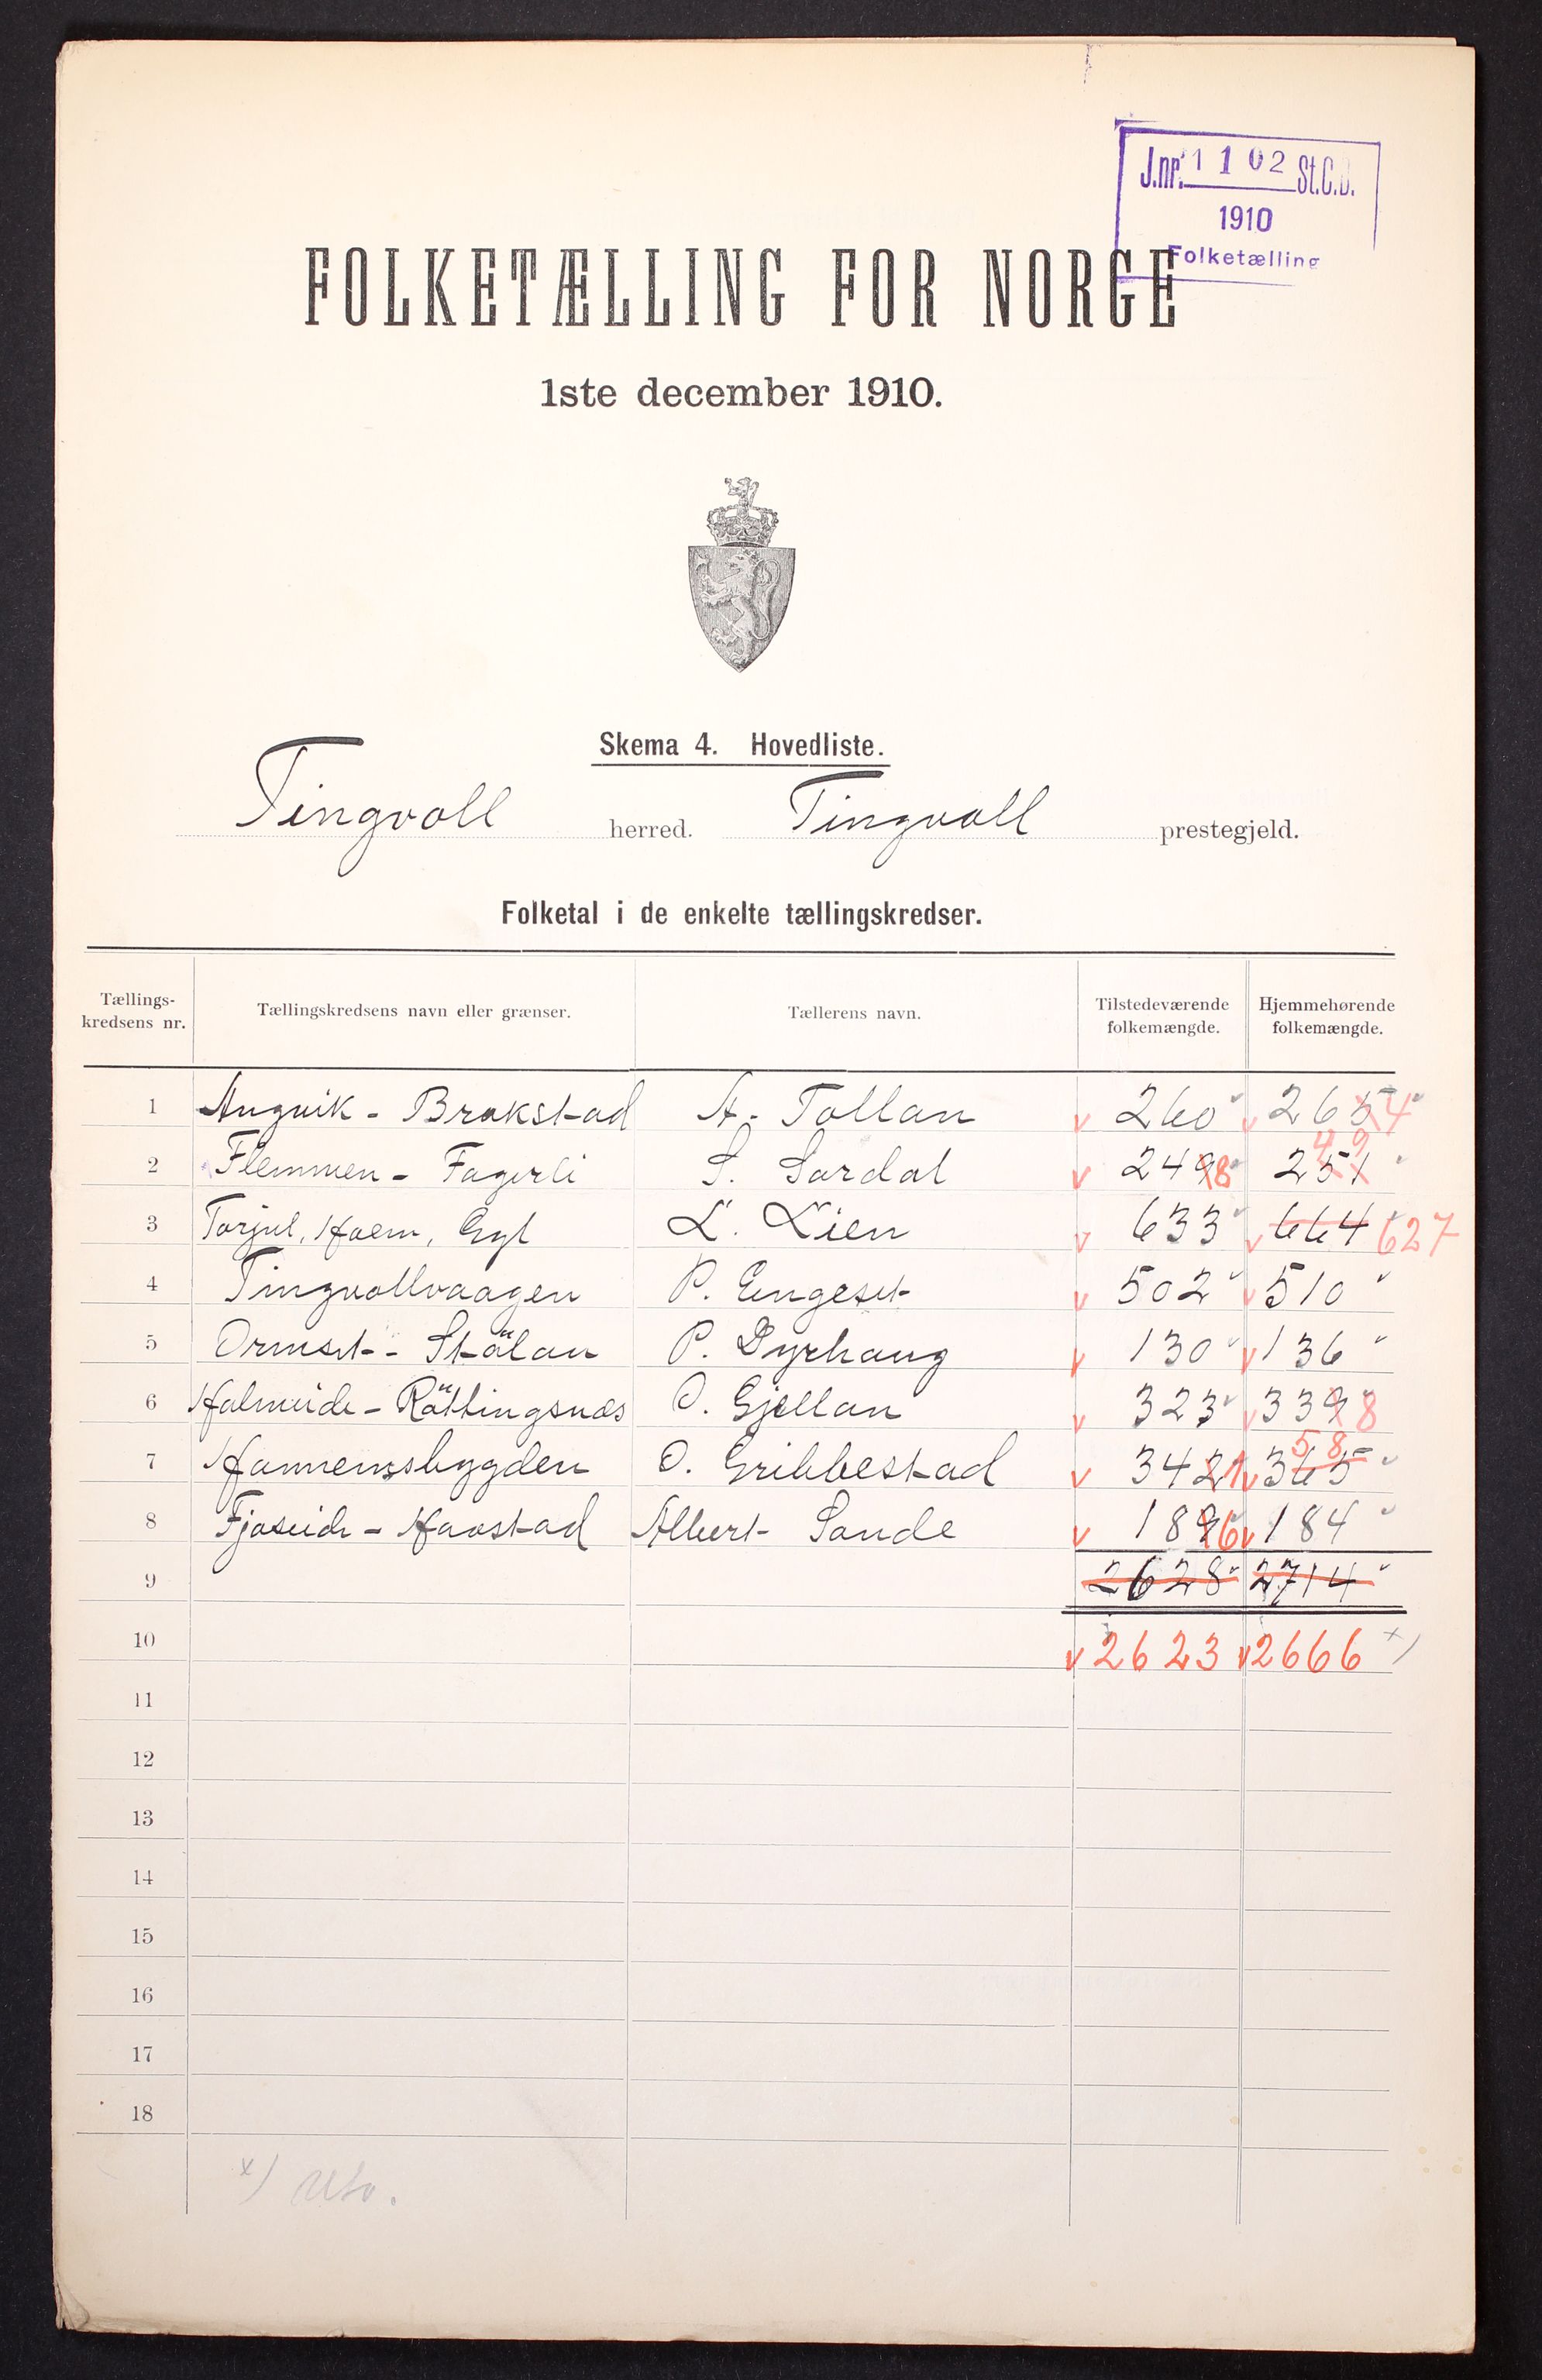 J.nr. 1102 St.C.B.
1910
Folketælling
FOLKETÆLLING FOR NORGE
1ste december 1910.
Skema 4. Hovedliste.
Tingvoll herred. Tingvoll prestegjeld.
Folketal i de enkelte tællingskredser.
Tællings-kredsens nr. Tællingskredsens navn eller grænser. Tællerens navn. Tilstedeværende folkemængde. Hjemmehørende folkemængde.
1 Angvik - Brakstad A. Tollan 260 265 4
2 Flemmen - Fagerli S. Sardal 249 8 251 4 9
3 Torjul, Holm, Gyl L. Lien 633 664 627
4 Tingvollvaagen P. Engeset 502 510
5 Ormset - Skålan P. Dyrhaug 130 136
6 Halmeide - Röttingsnæs O. Gjellan 323 339 8
7 Hannemsbygden O. Gribbestad 342 1 365 5 8
8 Fjøseide - Havstad Albert Sande 189 6 184
9 2628 2714
10 2623 2666 x)
11
12
13
14
15
16
17
18
x)